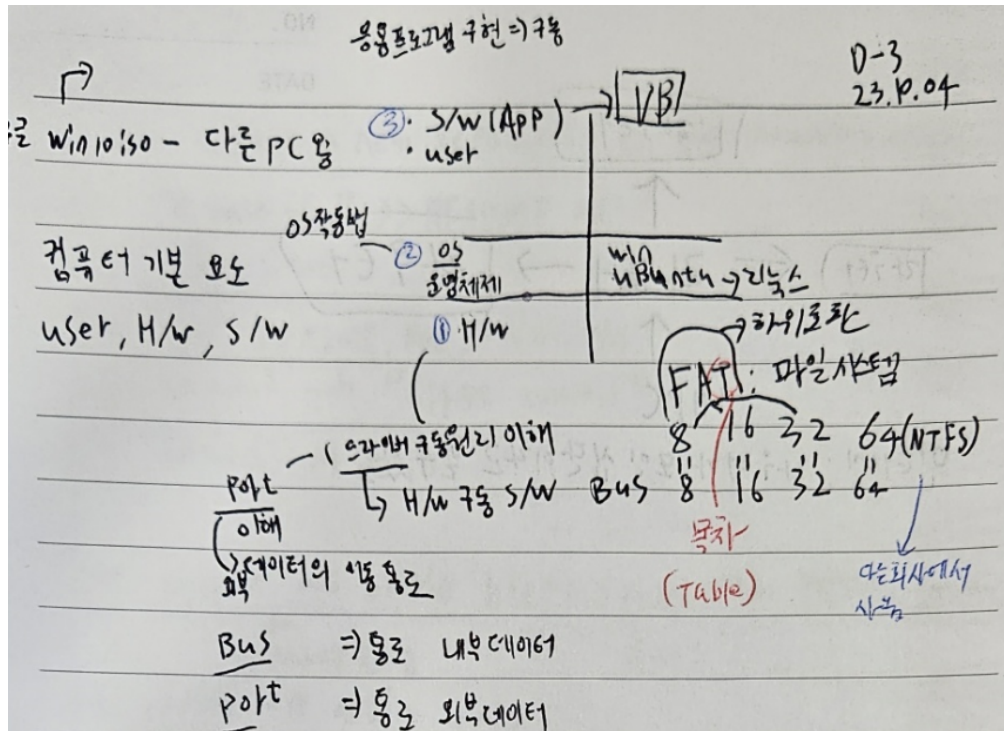 응용프로그램 구현 => 구동
D-3
23.10.04
③ · S/W (App) → VB
· user
win 10 iso - 다른 PC 용
OS작동법
② OS
운영체제
win
uBuntu → 리눅스
컴퓨터 기본 요소
user, H/W, S/W
① H/W
하위호환
FAT : 파일시스템
8 16 32 64 (NTFS)
" " " "
Bus 8 16 32 64
드라이버 구동원리 이해
H/W 구동 S/W
port
이해
외부 데이터의 이동 통로
목차
(Table)
다른회사에서
사용
Bus => 통로 내부데이터
port => 통로 외부데이터